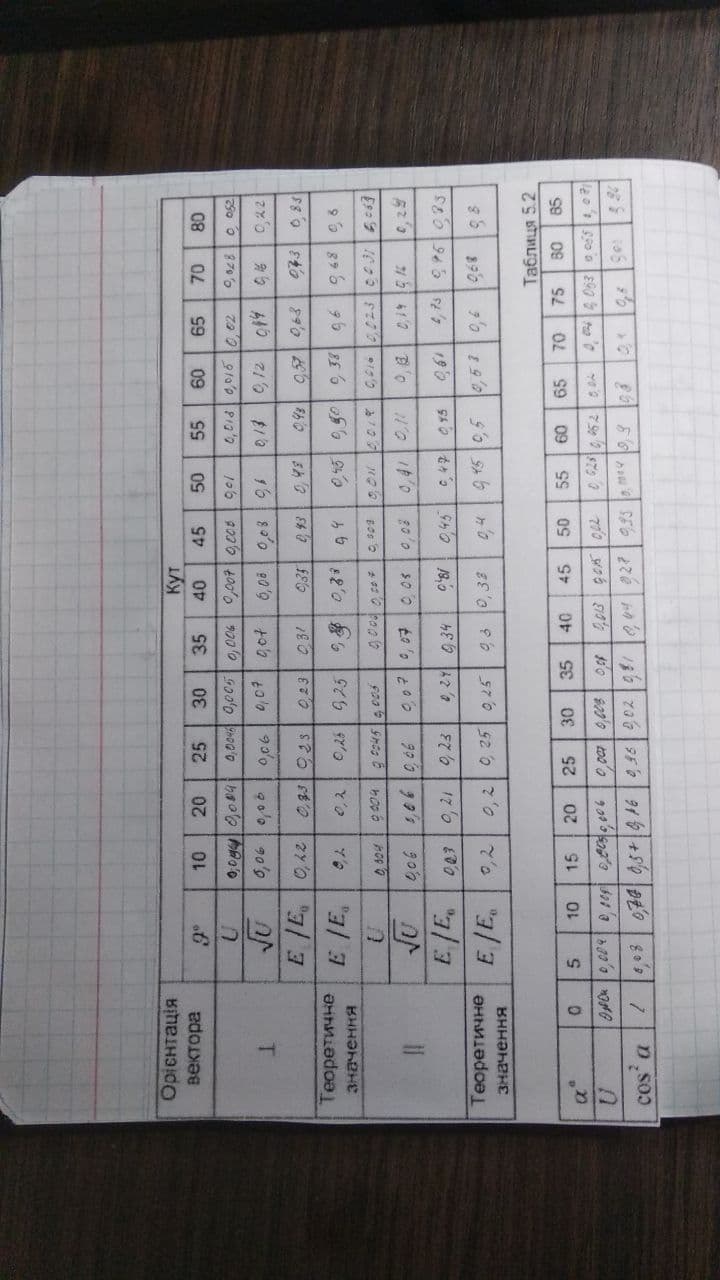 Орієнтація вектора Кут
ϑ° 10 20 25 30 35 40 45 50 55 60 65 70 80
⊥ U 0,004 0,004 0,0045 0,005 0,006 0,007 0,008 0,01 0,013 0,015 0,02 0,028 0,052
√U 0,06 0,06 0,06 0,07 0,07 0,08 0,08 0,1 0,11 0,12 0,14 0,16 0,22
E/E₀ 0,22 0,23 0,23 0,23 0,31 0,35 0,43 0,48 0,57 0,63 0,73 0,83
Теоретичне значення E/E₀ 0,2 0,2 0,25 0,25 0,38 0,4 0,45 0,50 0,58 0,6 0,68 0,8
|| U 0,004 0,004 0,0045 0,005 0,006 0,007 0,008 0,011 0,016 0,023 0,031 0,069
√U 0,06 0,06 0,06 0,07 0,07 0,08 0,08 0,11 0,11 0,12 0,14 0,16 0,29
E/E₀ 0,23 0,21 0,23 0,24 0,34 0,45 0,47 0,61 0,73 0,75 0,83
Теоретичне значення E/E₀ 0,2 0,2 0,25 0,25 0,3 0,38 0,4 0,45 0,5 0,58 0,6 0,68 0,8
Таблиця 5.2
α° 0 5 10 15 20 25 30 35 40 45 50 55 60 65 70 75 80 85
U 0,004 0,005 0,006 0,007 0,008 0,013 0,015 0,02 0,028 0,052 0,02 0,053 0,065 0,071
cos² α 1 0,03 0,57 0,16 0,96 0,02 0,81 0,44 0,27 0,93 0,9 0,8 0,4 0,8 0,01